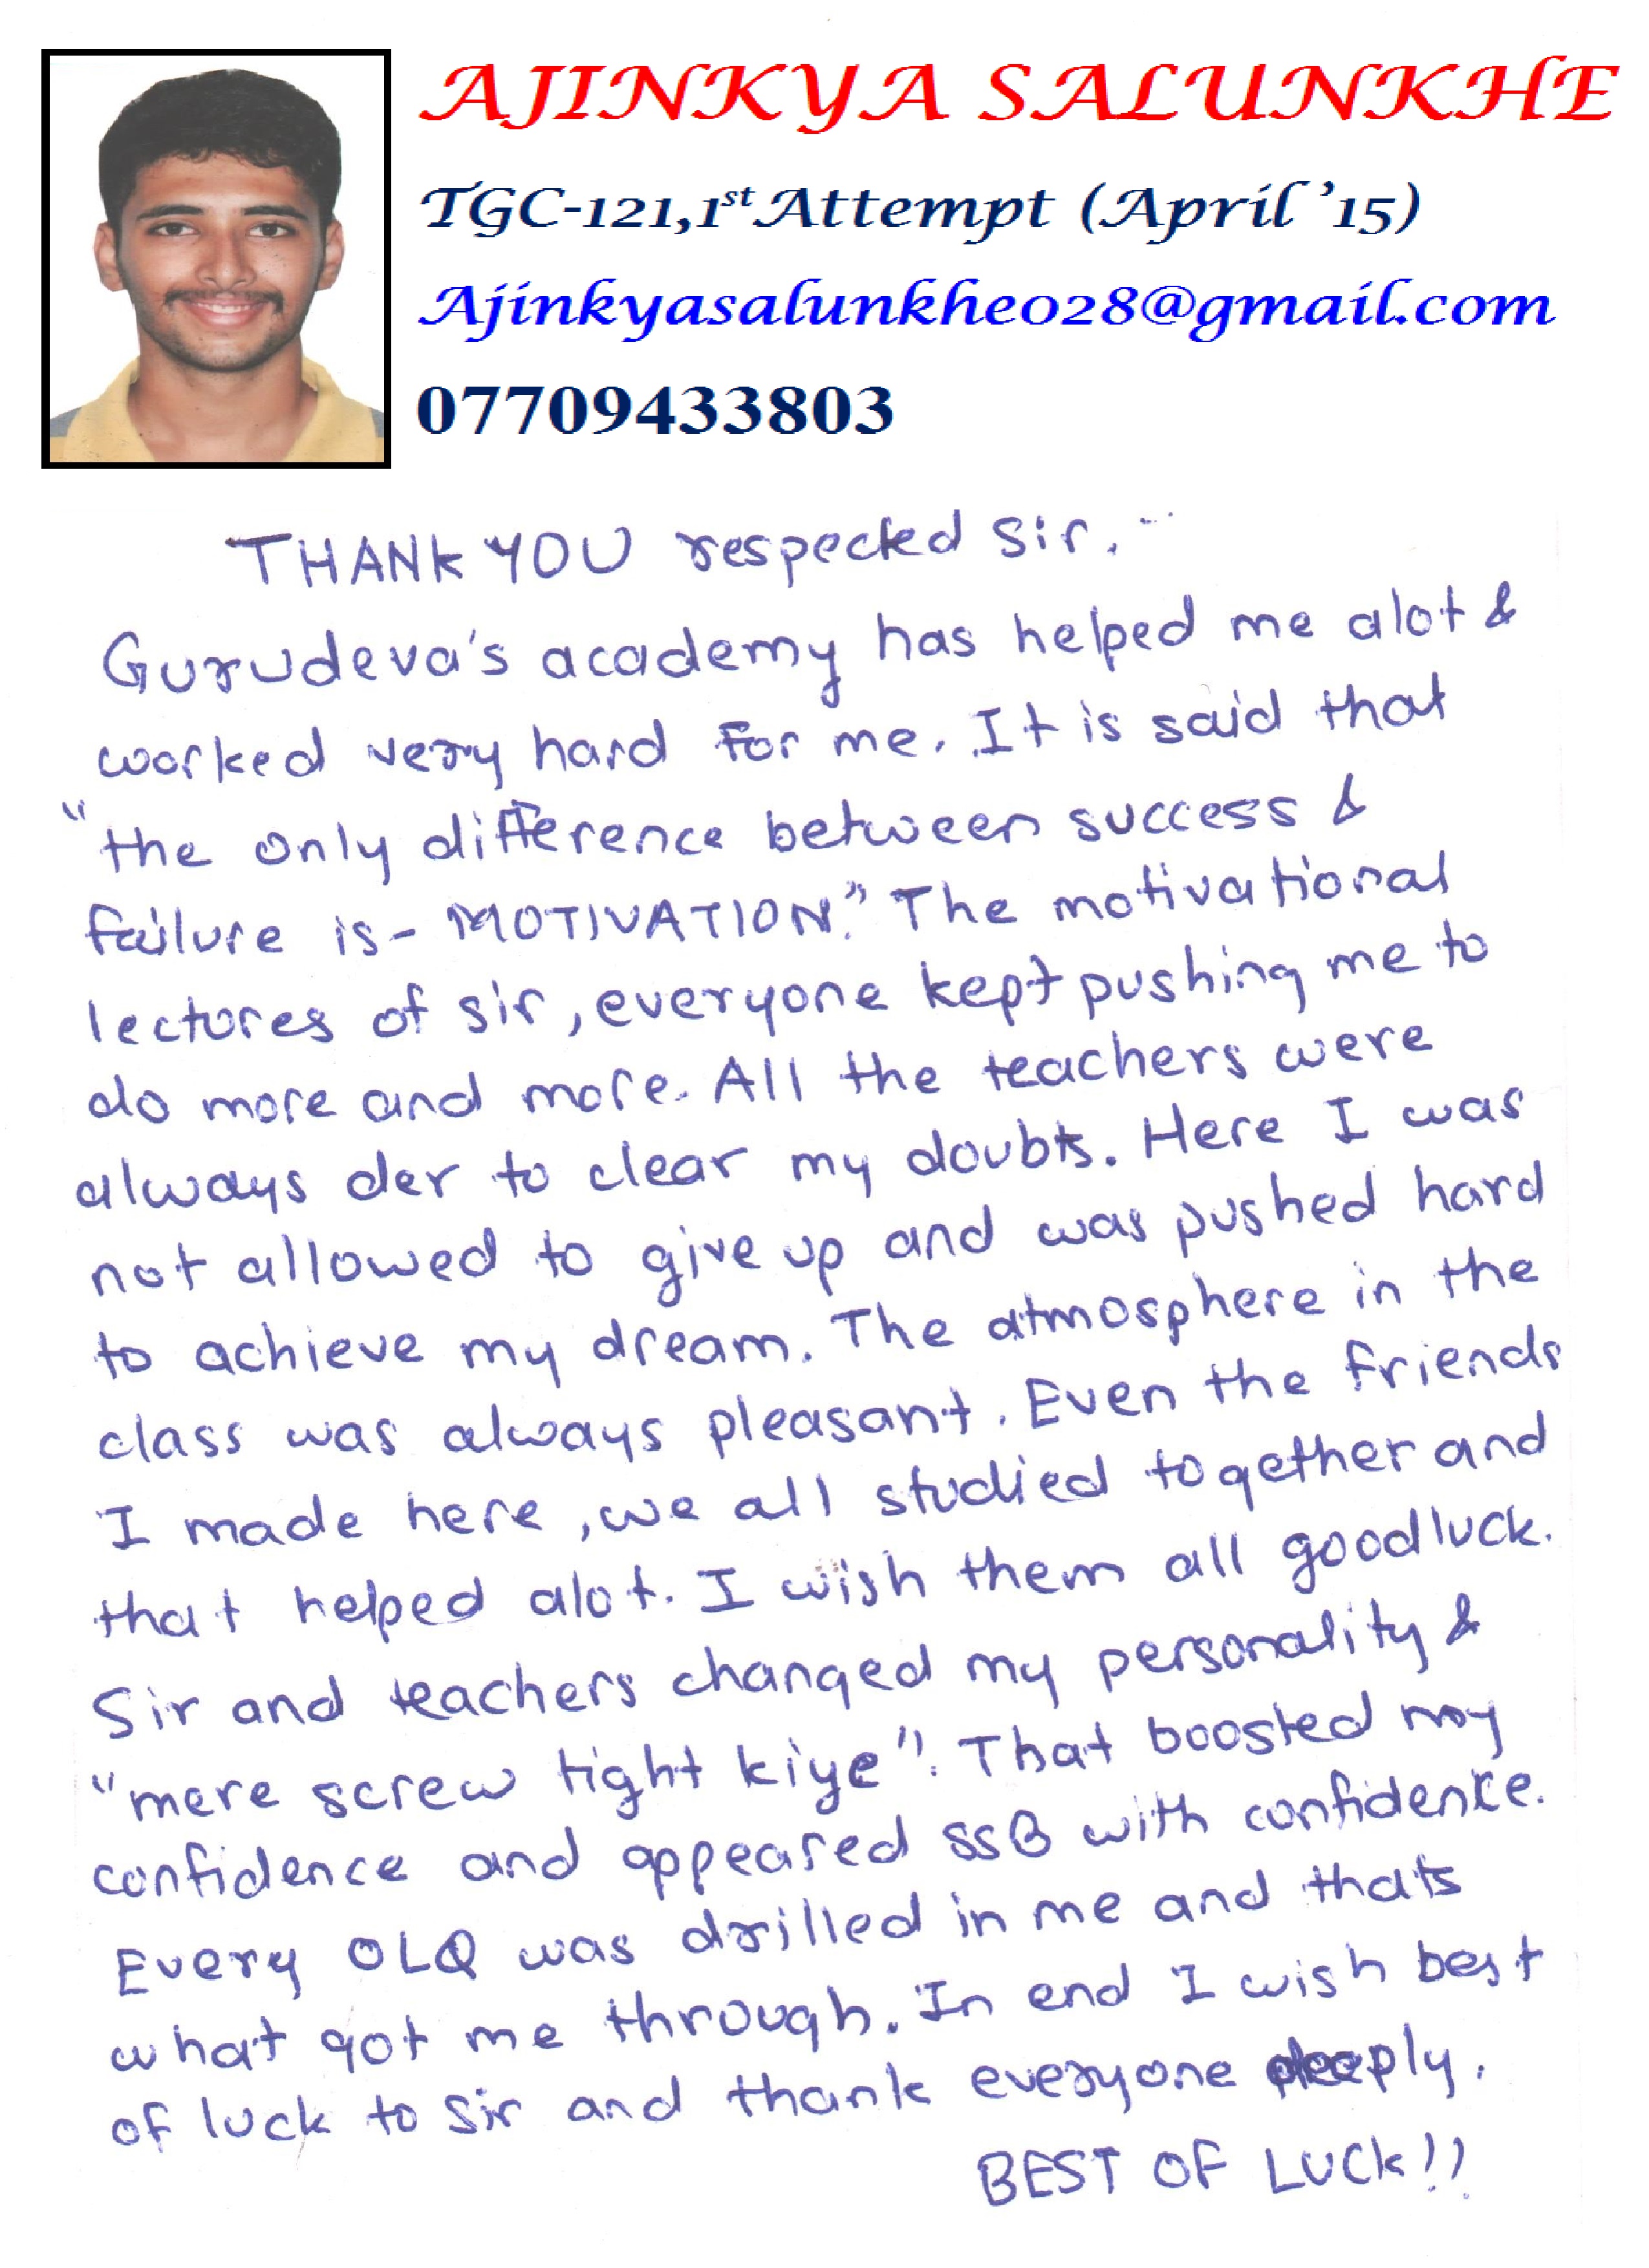 AJINKYA SALUNKHE
TGC-121,1st Attempt (April '15)
Ajinkyasalunkhe028@gmail.com
07709433803
THANK YOU respected Sir.
Gurudeva's academy has helped me alot &
worked very hard for me. It is said that
"the only difference between success &
failure is - MOTIVATION." The motivational
lectures of sir, everyone kept pushing me to
do more and more. All the teachers were
always der to clear my doubts. Here I was
not allowed to give up and was pushed hard
to achieve my dream. The atmosphere in the
class was always pleasant. Even the friends
I made here, we all studied together and
that helped alot. I wish them all goodluck.
Sir and teachers changed my personality &
"mere screw tight kiye". That boosted my
confidence and appeared SSB with confidence.
Every OLQ was drilled in me and thats
what got me through. In end I wish best
of luck to Sir and thank everyone deeply.
BEST OF LUCK!!